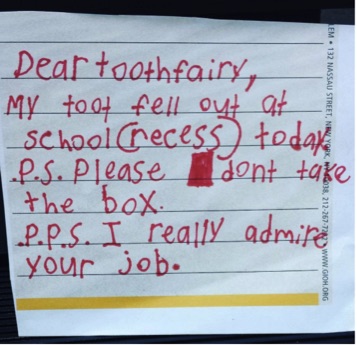 Dear toothfairy,
My toot fell out at
school (recess) today
.P.S. Please dont take
the box.
.P.P.S. I really admire
your job.
132 NASSAU STREET, NEW YORK,
212-267-
WWW.GIGH.ORG